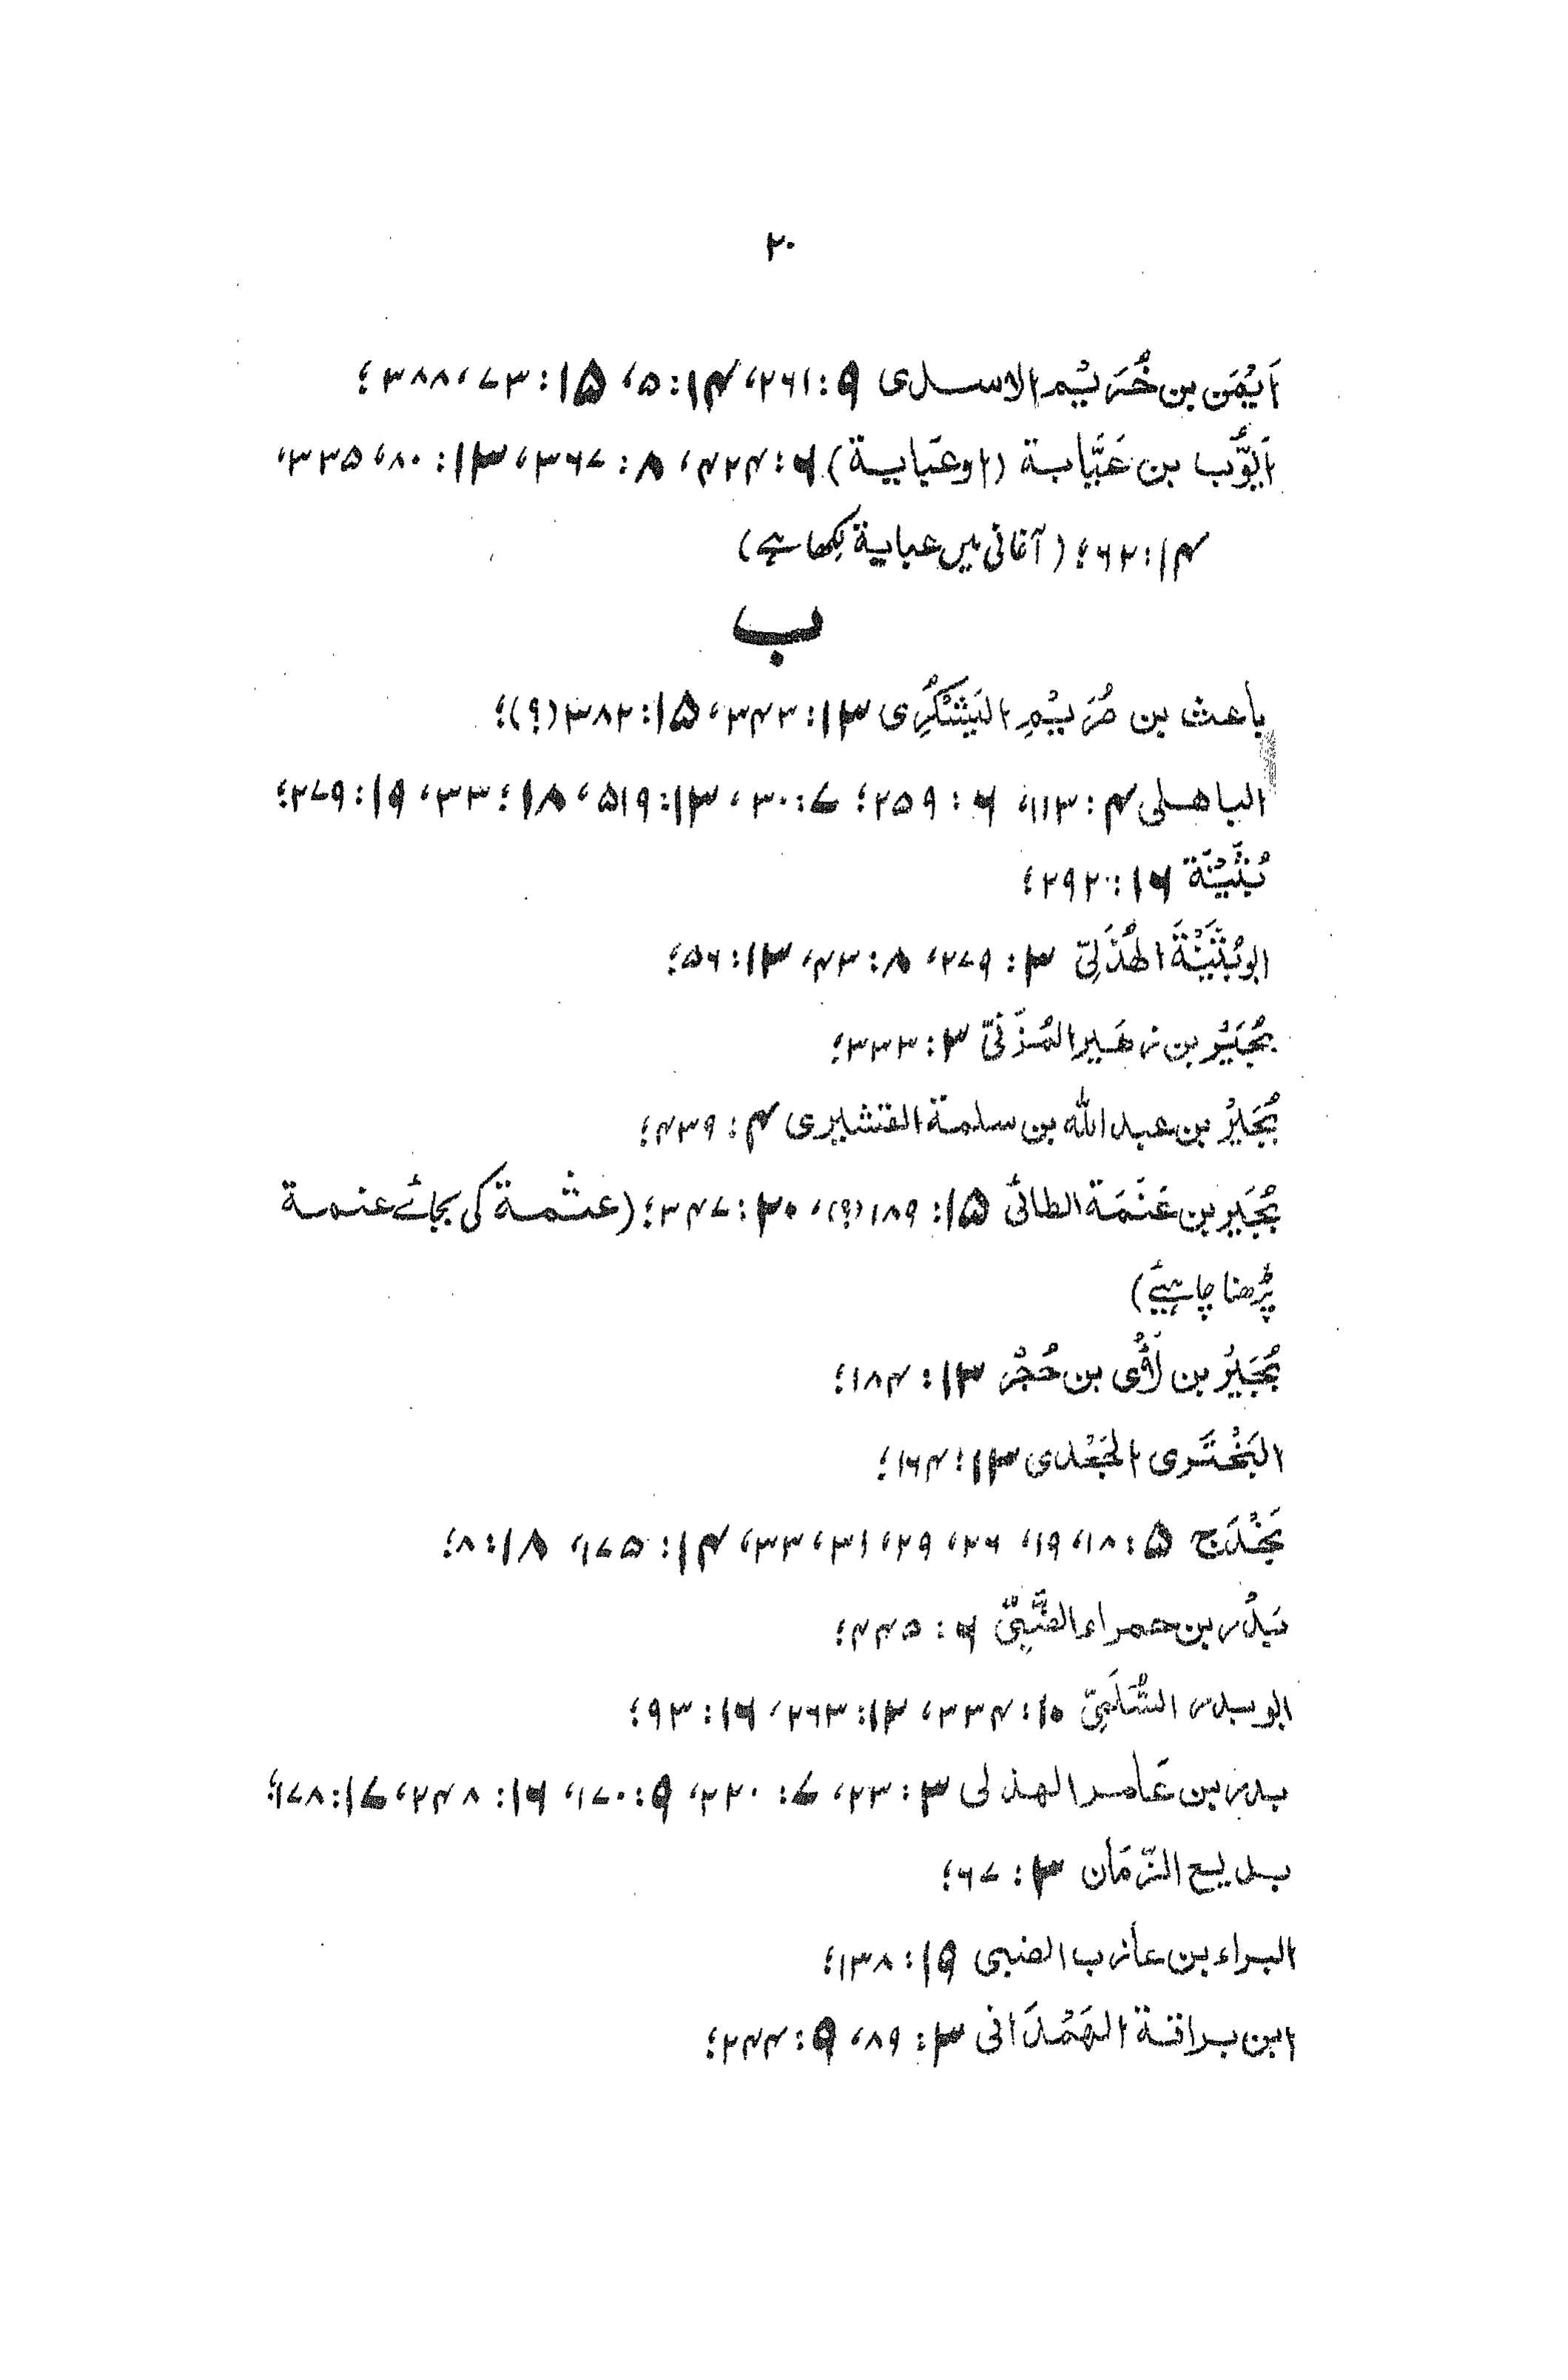 ۲۰
اَیْمَن بن خُرَیْم الاسدی ۹: ۲۶۱، ۱۴: ۵، ۱۵: ۳۷، ۳۸۸؛
اَیُّوب بن عَبَّابة (او عَبَایة) ۶: ۴۲۴، ۸: ۳۶۷، ۱۳: ۸۰، ۳۳۵،
۱۴: ۶۲؛ (آغانی میں عبایة لکھا ہے)
ب
باعث بن صُرَیْمِ الیَشْکُرِی ۱۳: ۳۴۳، ۱۵: ۳۸۲ (؟)؛
الباهلی ۴: ۱۱۳، ۶: ۲۵۹؛ ۷: ۳۰، ۱۳: ۵۱۹، ۱۸: ۳۳، ۱۹: ۲۷۹؛
بُثَیْنَة ۱۶: ۲۹۲؛
ابو بُثَیْنَةَ الهُذَلِیّ ۳: ۲۷۹، ۸: ۴۳، ۱۳: ۵۶؛
بُجَیْرُ بن زهَیر المُزَنیّ ۳: ۳۳۳؛
بُجَیرُ بن عبد الله بن سلمة القشیری ۴: ۴۳۹؛
بُجَیر بن عَنَمَة الطائی ۱۵: ۱۸۹ (؟)، ۲۰: ۳۴۷؛ (عثمة کی بجائے عنمة
پڑھنا چاہیئے)
بُجَیرُ بن لَؤُی بن حُجْر ۱۳: ۱۸۴؛
البَخْتَری الجَعْدی ۱۳: ۱۶۴؛
بَخْدَج ۵: ۱۸، ۱۹، ۲۶، ۲۹، ۳۱، ۳۳، ۱۴: ۱۷۵، ۱۸: ۸؛
بَدْر بن حمراء الضَّبِیّ ۶: ۴۴۵؛
ابو بدر السُّلَمِیّ ۱۰: ۳۳۴، ۱۲: ۲۶۳، ۱۶: ۹۳؛
بدر بن عَامر الهذلی ۳: ۲۳، ۷: ۲۲۰، ۹: ۱۷۰، ۱۶: ۲۴۸، ۱۷: ۱۷۸؛
بدیع الزّمَان ۳: ۶۷؛
البراء بن عازب الضبی ۱۹: ۱۳۸؛
ابن براقة الهَمْدَانی ۳: ۸۹، ۹: ۲۴۴؛